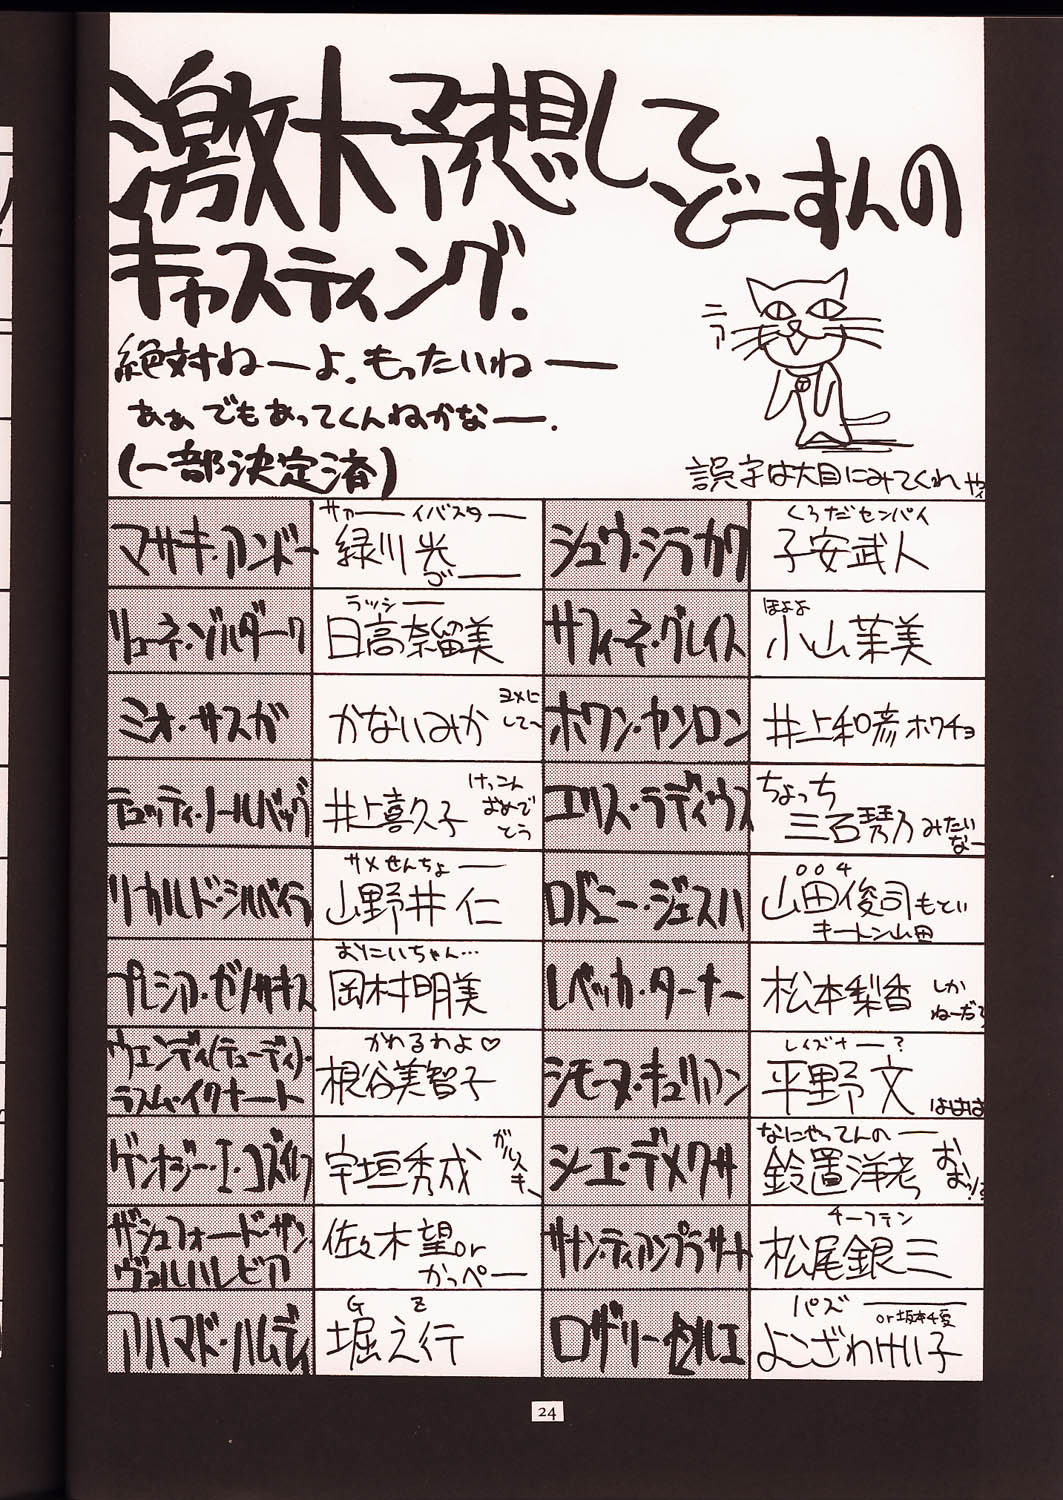 激大予想してどーすんの
キャスティング.
絶対ねーよ.もったいねー
あぁ でもあってくんねかなー.
(一部決定済)
ニァ
誤字は大目にみてくれ ヤ
マサキ・アンドー
サァーイバスター
緑川光
ごー
シュウ・シラカワ
くろだセンパイ
子安武人
リューネ・ゾルダーク
ラッシー
日高奈留美
サフィーネ・グレイス
ほよよ
小山茉美
ミオ・サスガ
かないみか
ヨメに
して〜
ホワン・ヤンロン
井上和彦 ホワチョ
テュッティ・ノールバック
井上喜久子
けっこん
おめで
とう
エリス・ラディウス
ちょっち
三石琴乃 みたい
なー
リカルド・シルベイラ
サメせんちょー
山野井仁
ロドニー・ジェスハ
004
山田俊司 もとい
キートン山田
プレシア・ゼノサキス
おにいちゃん…
岡村明美
レベッカ・ターナー
松本梨香 しか
ねーだろ
ウェンディ(テューディ)・
ラスム・イクナート
かわるわよ♡
根谷美智子
シモーヌ・キュリアン
レイズナー?
平野文
ははは
ゲンナジー・I・コズイレフ
宇垣秀成
シーエ・デメクサ
なにやってんのー
鈴置洋孝
おおッ!?
ザシュフォード・ザン・
ヴァルハレビア
佐々木望or
かっぺー
サナン・ティアンプラサート
チーフテン
松尾銀三
アハマド・ハムディ
G Z
堀之行
ロザリー・セルエ
パズー
or坂本千夏
よこざわけい子
24